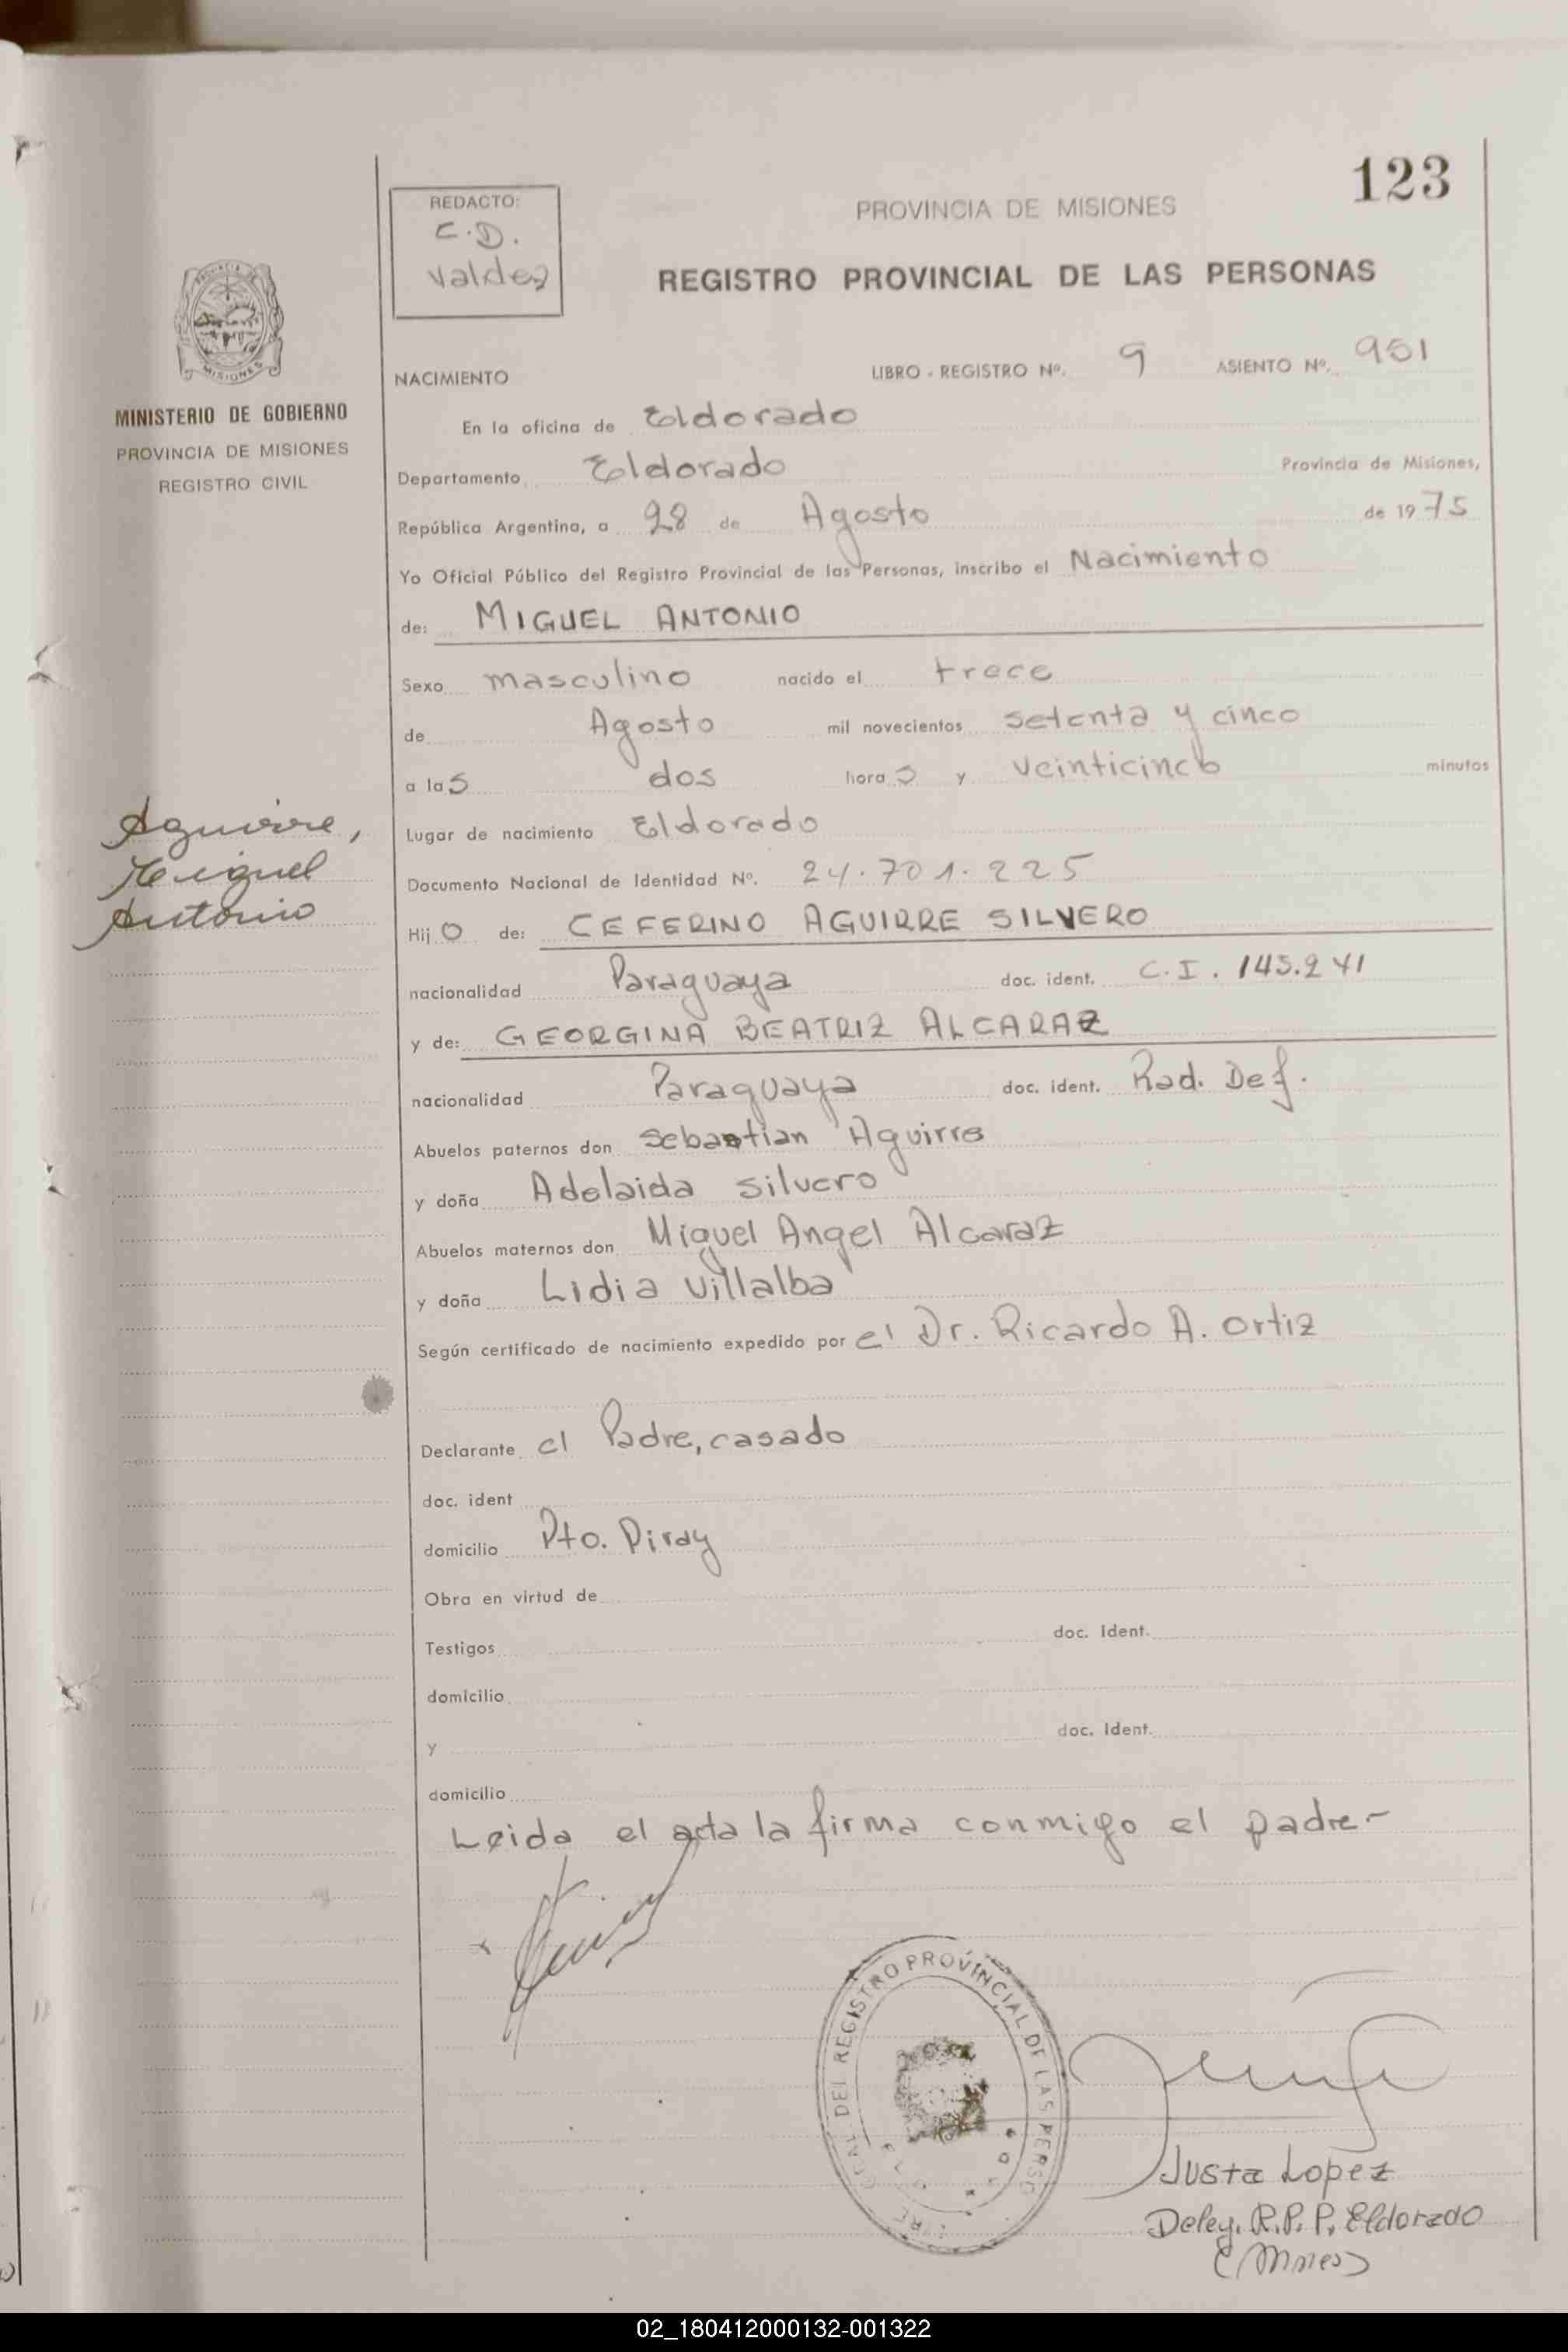 123
REDACTO:
C.D.
Valdez
PROVINCIA DE MISIONES
REGISTRO PROVINCIAL DE LAS PERSONAS
MISIONES
MINISTERIO DE GOBIERNO
PROVINCIA DE MISIONES
REGISTRO CIVIL
NACIMIENTO LIBRO - REGISTRO Nº. 9 ASIENTO Nº. 951
En la oficina de Eldorado
Departamento Eldorado Provincia de Misiones,
República Argentina, a 28 de Agosto de 1975
Yo Oficial Público del Registro Provincial de las Personas, inscribo el Nacimiento
de: MIGUEL ANTONIO
Sexo masculino nacido el trece
de Agosto mil novecientos setenta y cinco
a las dos horas y veinticinco minutos
Aguirre,
Miguel
Antonio
Lugar de nacimiento Eldorado
Documento Nacional de Identidad Nº. 24.701.225
Hijo de: CEFERINO AGUIRRE SILVERO
nacionalidad Paraguaya doc. ident. C.I. 143.241
y de: GEORGINA BEATRIZ ALCARAZ
nacionalidad Paraguaya doc. ident. Rad. Def.
Abuelos paternos don Sebastian Aguirre
y doña Adelaida Silvero
Abuelos maternos don Miguel Angel Alcaraz
y doña Lidia Villalba
Según certificado de nacimiento expedido por el Dr. Ricardo A. Ortiz
Declarante el Padre, casado
doc. ident
domicilio Pto. Piray
Obra en virtud de
Testigos doc. ident.
domicilio
y doc. ident.
domicilio
Leida el acta la firma conmigo el padre-
DEL REGISTRO PROVINCIAL DE LAS PERSO
Justa Lopez
Deleg. R.P.P. Eldorado
(Mnes)
02_180412000132-001322